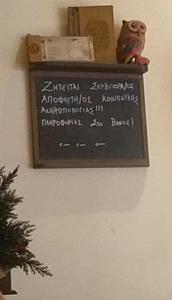 Ζητείται Σερβιτόρα/ος
Απόφοιτη/ος Κοινωνικής
Ανθρωπολογίας!!!
Πληροφορίες Στο Βάθος!
← ← ←